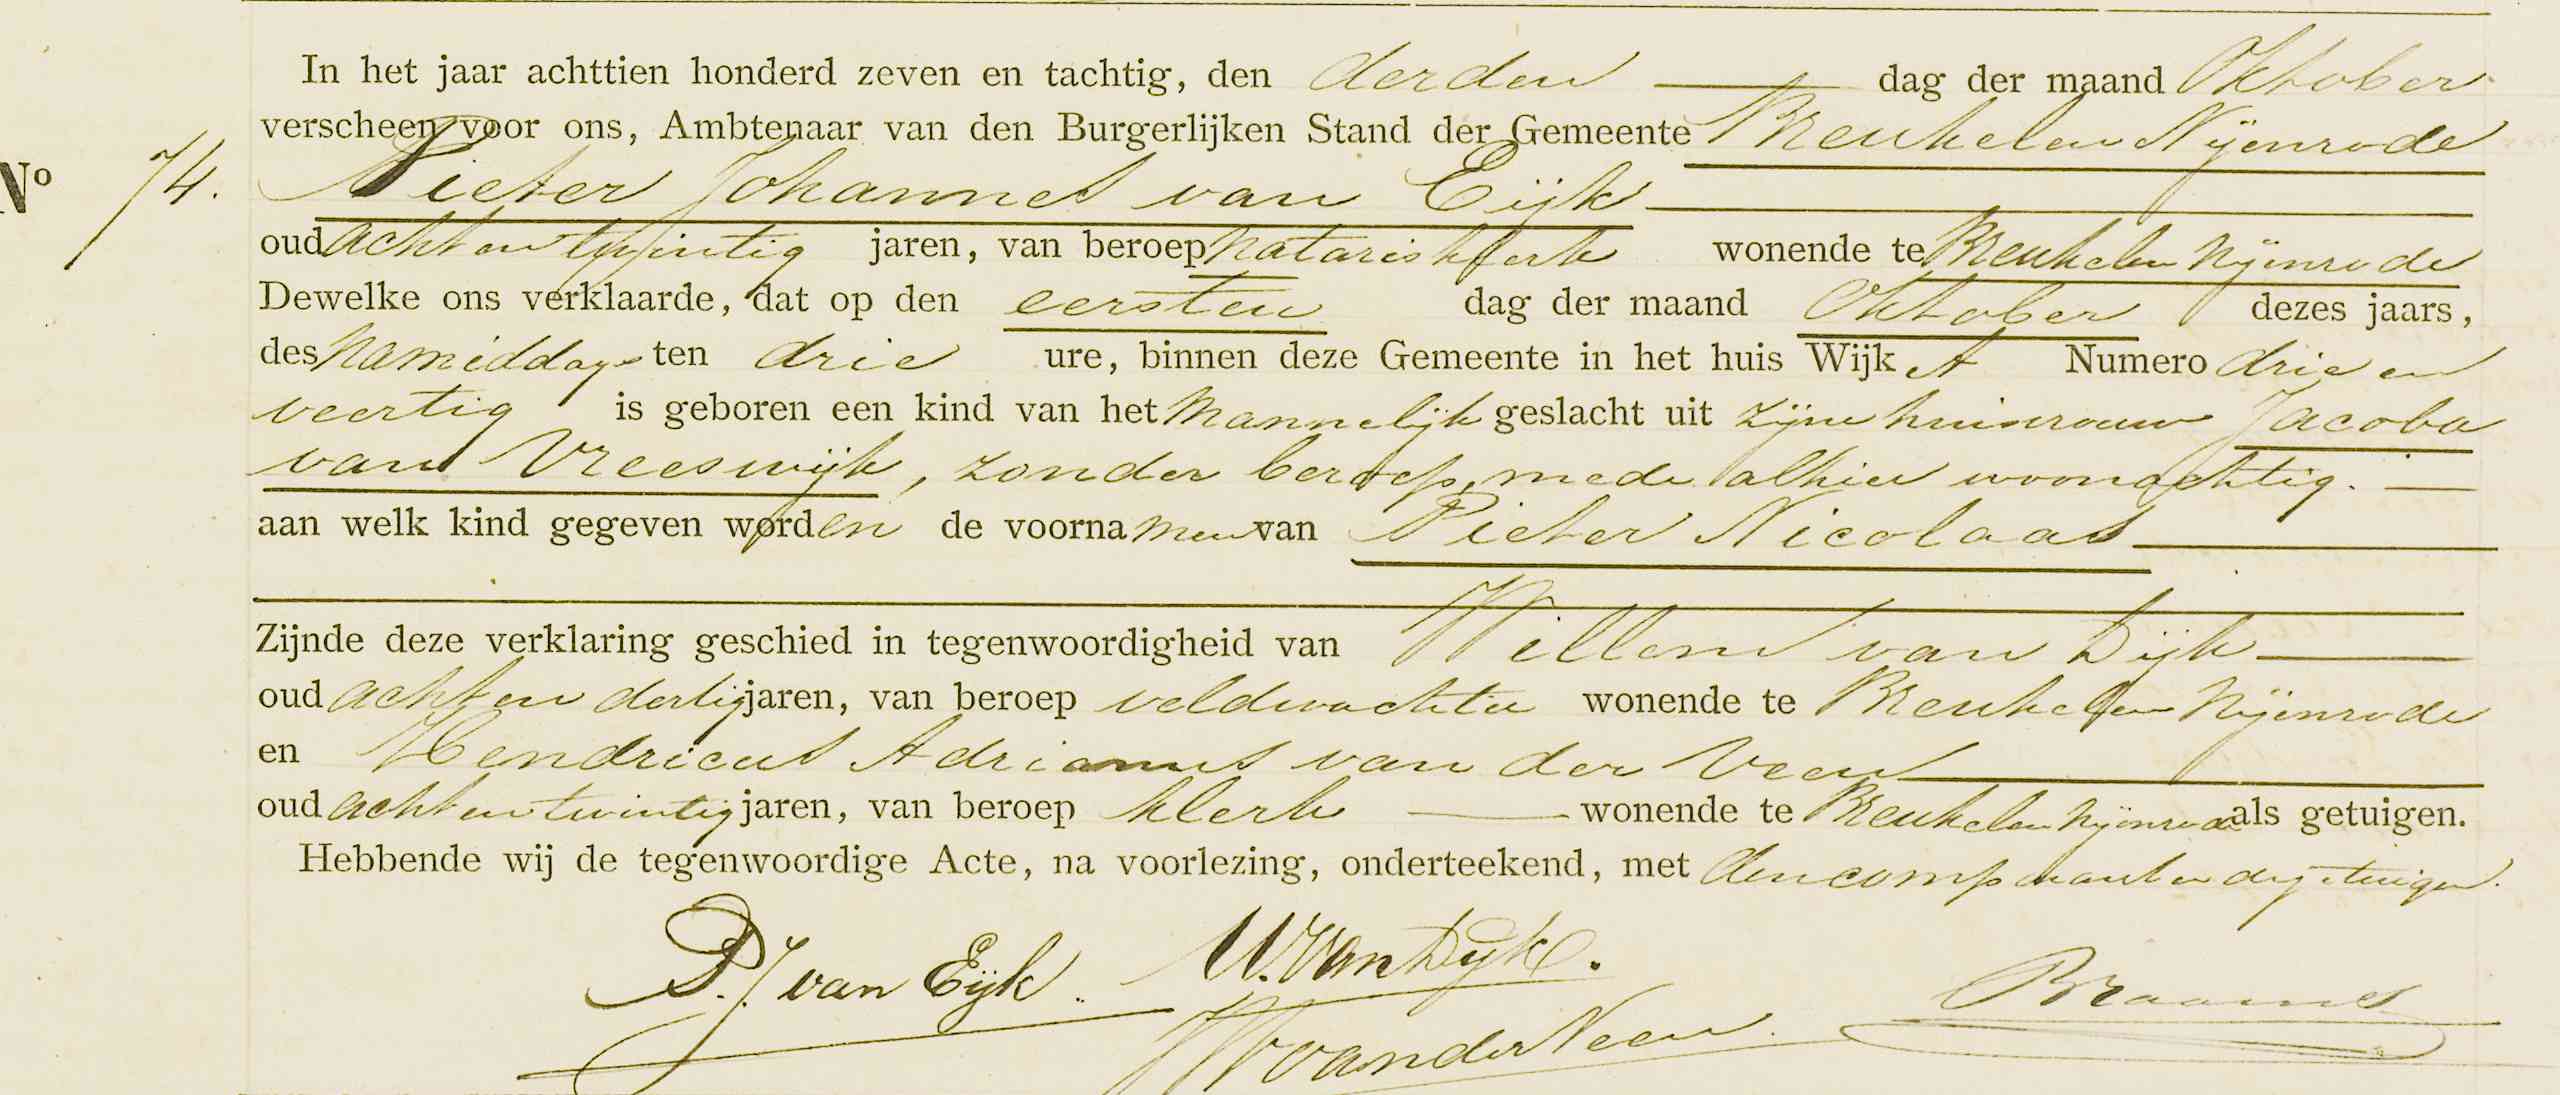 In het jaar achttien honderd zeven en tachtig, den derden dag der maand Oktober
verscheen voor ons, Ambtenaar van den Burgerlijken Stand der Gemeente Breukelen Nijenrode
No 74. Pieter Johannes van Eijk
oud acht en twintig jaren, van beroep notarisklerk wonende te Breukelen Nijenrode
Dewelke ons verklaarde, dat op den eersten dag der maand Oktober dezes jaars,
des namiddags ten drie ure, binnen deze Gemeente in het huis Wijk A Numero drie en
veertig is geboren een kind van het Mannelijk geslacht uit zijne huisvrouw Jacoba
van Vreeswijk, zonder beroep, mede alhier woonachtig.
aan welk kind gegeven worden de voornamen van Pieter Nicolaas
Zijnde deze verklaring geschied in tegenwoordigheid van Willem van Dijk
oud acht en dertig jaren, van beroep veldwachter wonende te Breukelen Nijenrode
en Hendricus Adrianus van der Veen
oud acht en twintig jaren, van beroep klerk wonende te Breukelen Nijenrode als getuigen.
Hebbende wij de tegenwoordige Acte, na voorlezing, onderteekend, met den comparant en de getuigen.
P. J. van Eijk. W. van Dijk.
Braams
van der Veen.